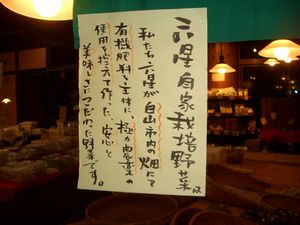 六星自家栽培野菜は
私たち、六星が白山市内の畑にて
有機肥料を主体に、極力農薬の
使用を控えて作った、安心と
美味しさにこだわった野菜です。